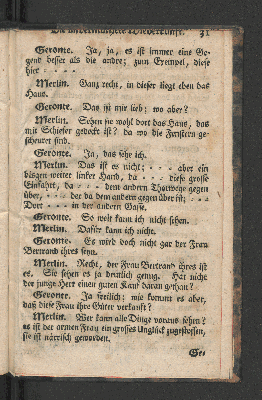 Die unvermuthete Wiederkunft. 31
Geronte. Ja, ja, es ist immer eine Ge-
gend besser als die andre; zum Exempel, diese
hier - - - -
Merlin. Ganz recht, in dieser liegt eben das
Haus.
Geronte. Das ist mir lieb; wo aber?
Merlin. Sehen sie wohl dort das Haus, das
mit Schiefer gedeckt ist? da wo die Fenstern ge-
scheuret sind.
Geronte. Ja, das sehe ich.
Merlin. Das ist es nicht; - - - aber ein
bisgen weiter linker Hand, da - - - diese grosse
Einfahrt, da - - - dem andern Thorwege gegen
über, - - - der da dem andern gegen über ist; - - -
Dort - - - in der andern Gasse.
Geronte. So weit kann ich nicht sehen.
Merlin. Dafür kann ich nicht.
Geronte. Es wird doch nicht gar der Frau
Bertrand ihres seyn.
Merlin. Recht, der Frau Bertrand ihres ist
es. Sie sehen es ja deutlich genug. Hat nicht
der junge Herr einen guten Kauf daran gethan?
Geronte. Ja freilich; wie kommt es aber,
daß diese Frau ihre Güter verkauft?
Merlin. Wer kann alle Dinge voraus sehen?
es ist der armen Frau ein grosses Unglück zugestossen,
sie ist närrisch geworden.
Ge-